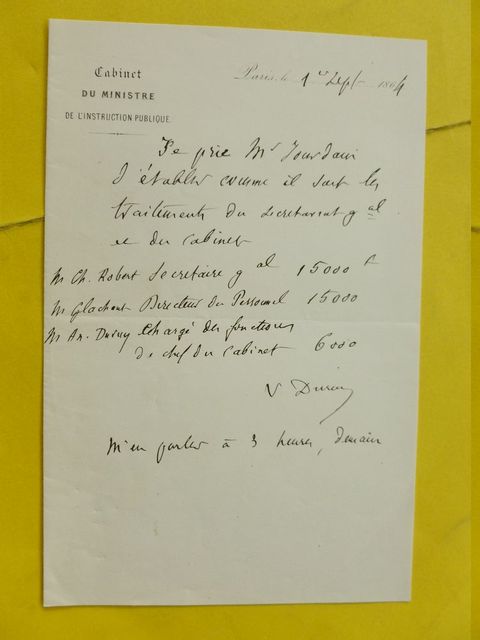 Cabinet
DU MINISTRE
DE L'INSTRUCTION PUBLIQUE.
Paris, le 1er Sept 1864
Je prie Mr Jourdain
d'établir comme il suit les
traitements du secretariat gal
et du cabinet
M. Ch. Robert Secretaire gal 15000 f
M. Glachant Directeur du Personnel 15000
M. An. Duruy Chargé des fonctions
de chef du Cabinet 6000
V Duruy
M'en parler à 3 heures, demain